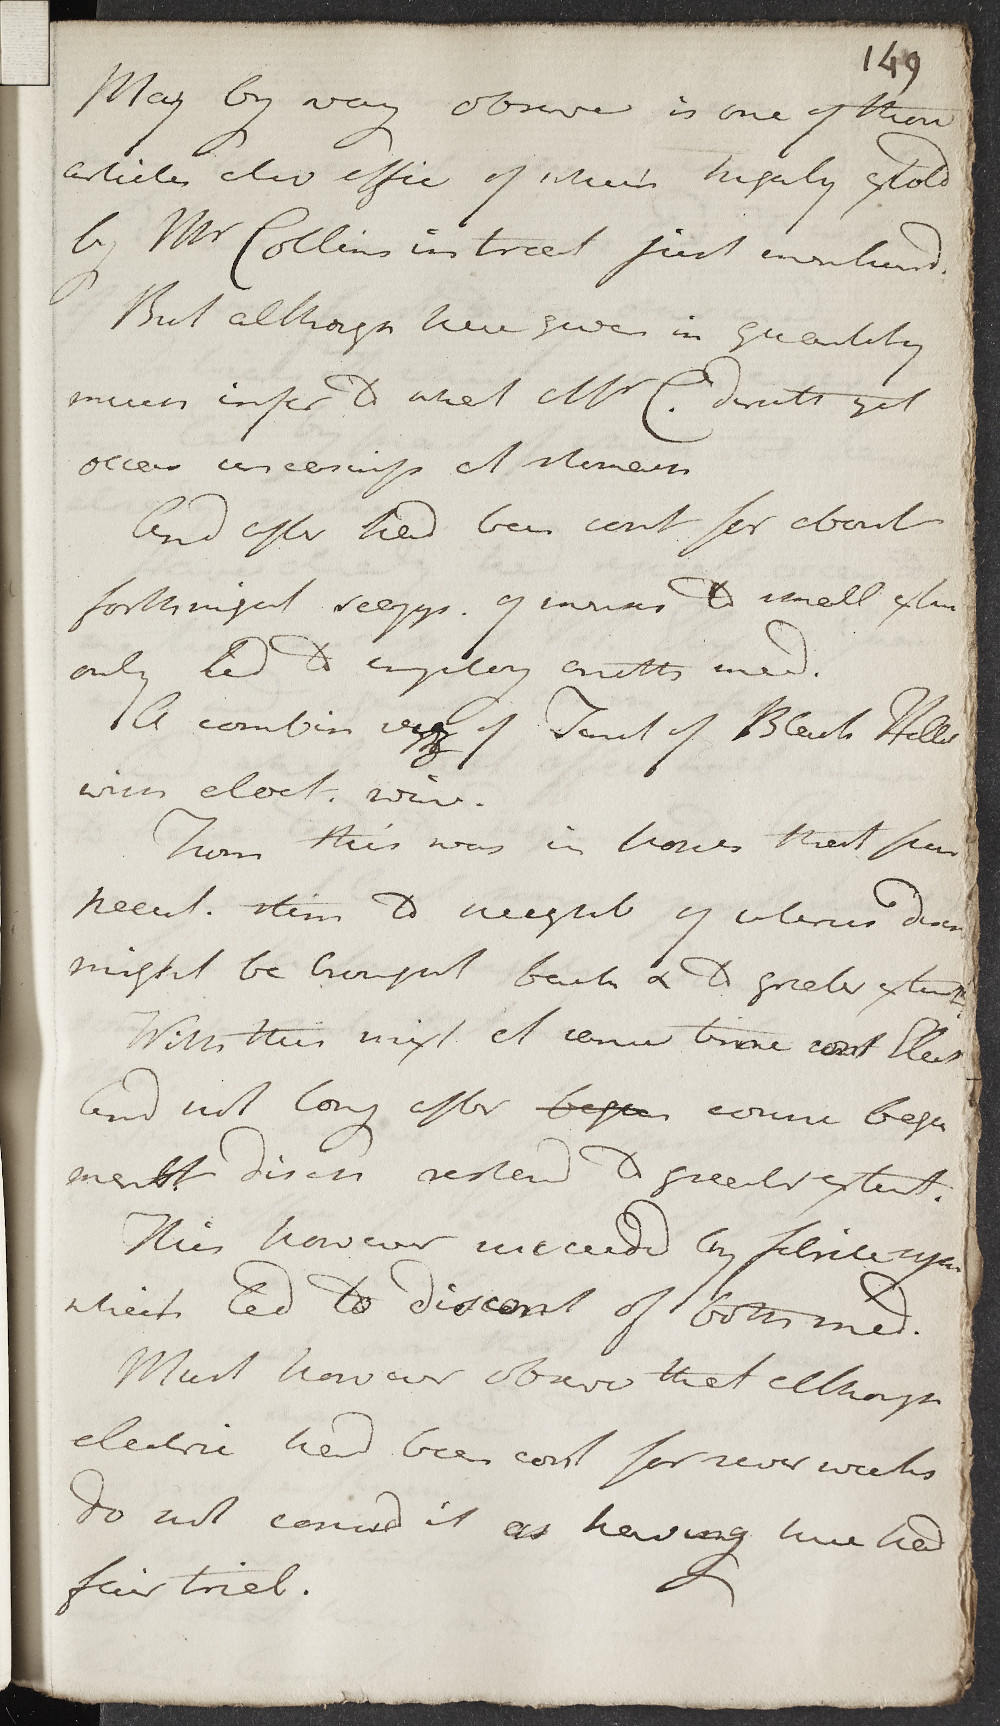 149
May by way observe is one of those
articles diu effic of which highly extold
by Mr Collins in treat just mentiond.
But although here given in quantity
much infer to what Mr C. directs yet
occas uneasiness at stomach
And after had been cont for about
forthnight suppr. of menses to small exten
only led to employ anoth med.
A combin of Tinct of Black Helleb
with elect. wine.
From this was in hopes that from
pecul. stim to uterus disch
might be brought back & to greater extent.
With this mixt at same time cont Elect
And not long after began some began
menst disch restord to greater extent.
This however succeeded by febrile sym
which led to discont of both med.
Must however observe that although
electric had been cont for sever weeks
do not consid it as having here had
fair trial.